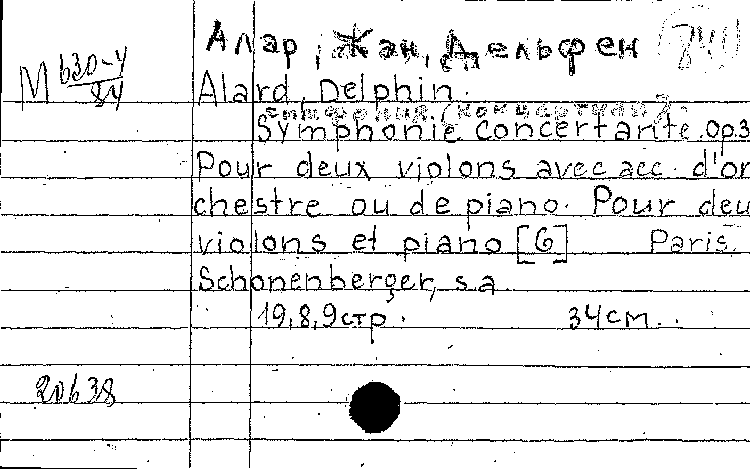 Алар, Жан, Дельфен
841
M 630-4/84
Alard, Delphin.
Симфония (концертная).
Symphonie concertante. Op3
Pour deux violons avec acc. d'or
chestre ou de piano. Pour deu
violons et piano [G] Paris.
Schonenberger, s.a.
19,8,9стр. 34см.
20638